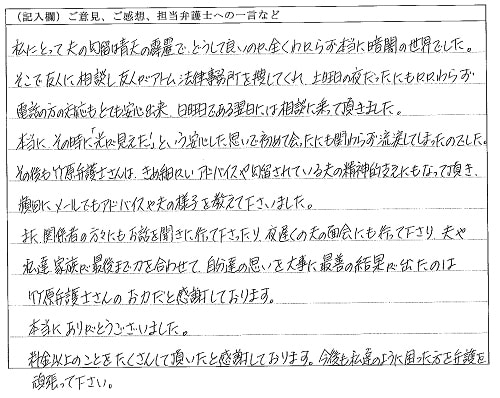 （記入欄）ご意見、ご感想、担当弁護士への一言など
私にとって夫の勾留は青天の霹靂で、どうして良いのか全くわからず本当に暗闇の世界でした。
そこで友人に相談し友人がアトム法律事務所を捜してくれ、土曜日の夜だったにもかかわらず
電話の方の対応もとても安心出来、日曜日である翌日には相談に乗って頂きました。
本当に、その時に「光が見えた！」という安心した思いで初めて会ったにも関わらず流涙してしまったのでした。
その後も竹原弁護士さんは、きめ細かいアドバイスや勾留されている夫の精神的支えにもなって頂き、
頻回にメールでもアドバイスや夫の様子を教えて下さいました。
また、関係者の方々にもお話を聞きに行って下さったり、夜遅くの夫の面会にも行って下さり、夫や
私達家族が最後まで力を合わせて、自分達の思いを大事に最善の結果が出たのは
竹原弁護士さんのお力だと感謝しております。
本当にありがとうございました。
料金以上のことをたくさんして頂いたと感謝しております。今後も私達のように困った方を弁護を
頑張って下さい。